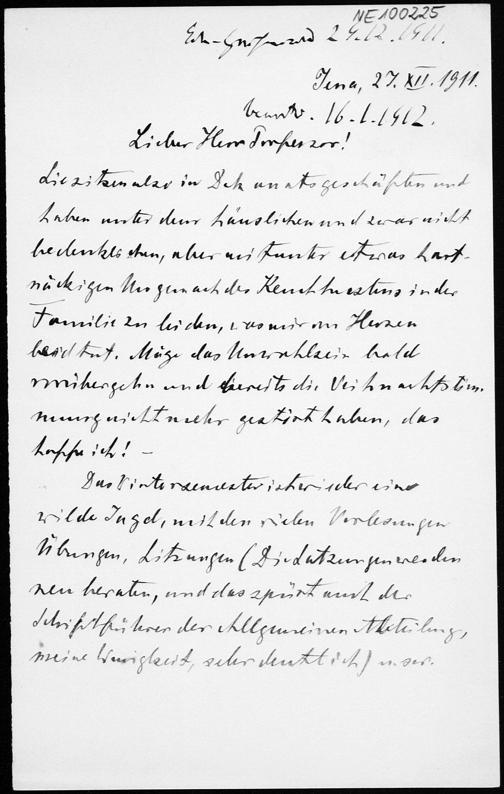 NE100225
29.12.1911.
Jena, 27. XII. 1911.
beantw. 16.1.1912.
Lieber Herr Professor!
Sie sitzen also in Dekanatsgeschäften und
haben unter dem häuslichen und zwar nicht
bedenklichen, aber mitunter etwas hart-
näckigen Ungemach des Keuchhustens in der
Familie zu leiden, was mir von Herzen
leid tut. Möge das Unwohlsein bald
vorübergehn und bereits die Weihnachtsstim-
mung nicht mehr gestört haben, das
hoffe ich! –
Das Wintersemester ist wieder eine
wilde Jagd, mit den vielen Vorlesungen
Übungen, Sitzungen (Die Satzungen werden
neu beraten, und das spürt auch der
Schriftführer der Allgemeinen Abteilung,
meine Wenigkeit, sehr deutlich) u.s.w.